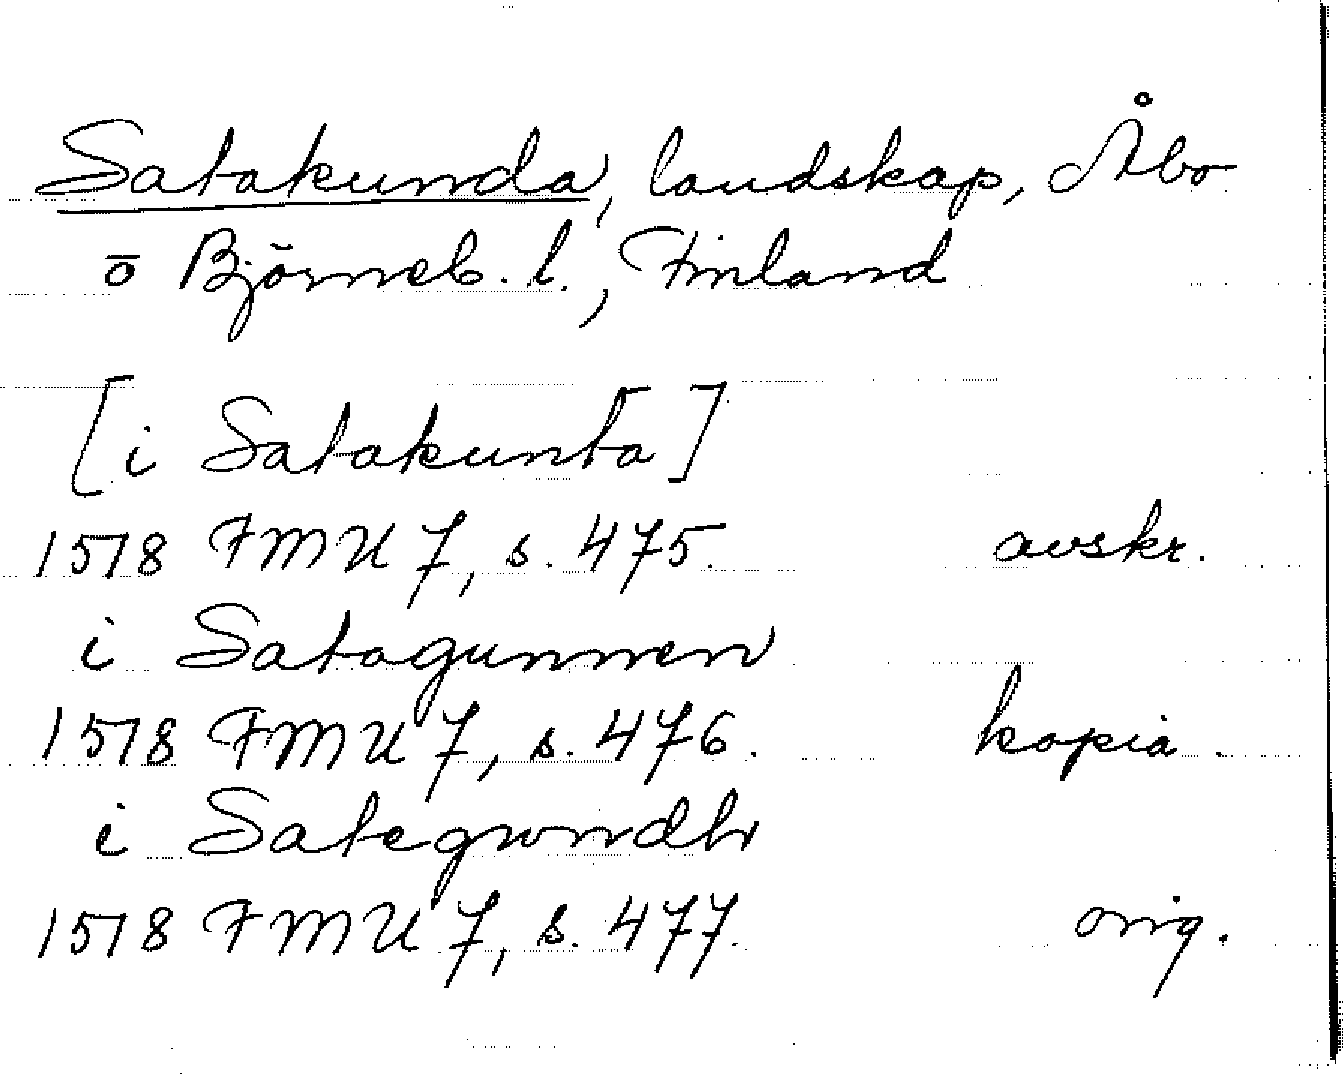 Satakunda, landskap, Åbo
o Björneb. l., Finland
[i Satakunta]
1518 FMU 7, s. 475. avskr.
i Satagunnen
1518 FMU 7, s. 476. kopia.
i Categwndh
1518 FMU 7, s. 477. orig.